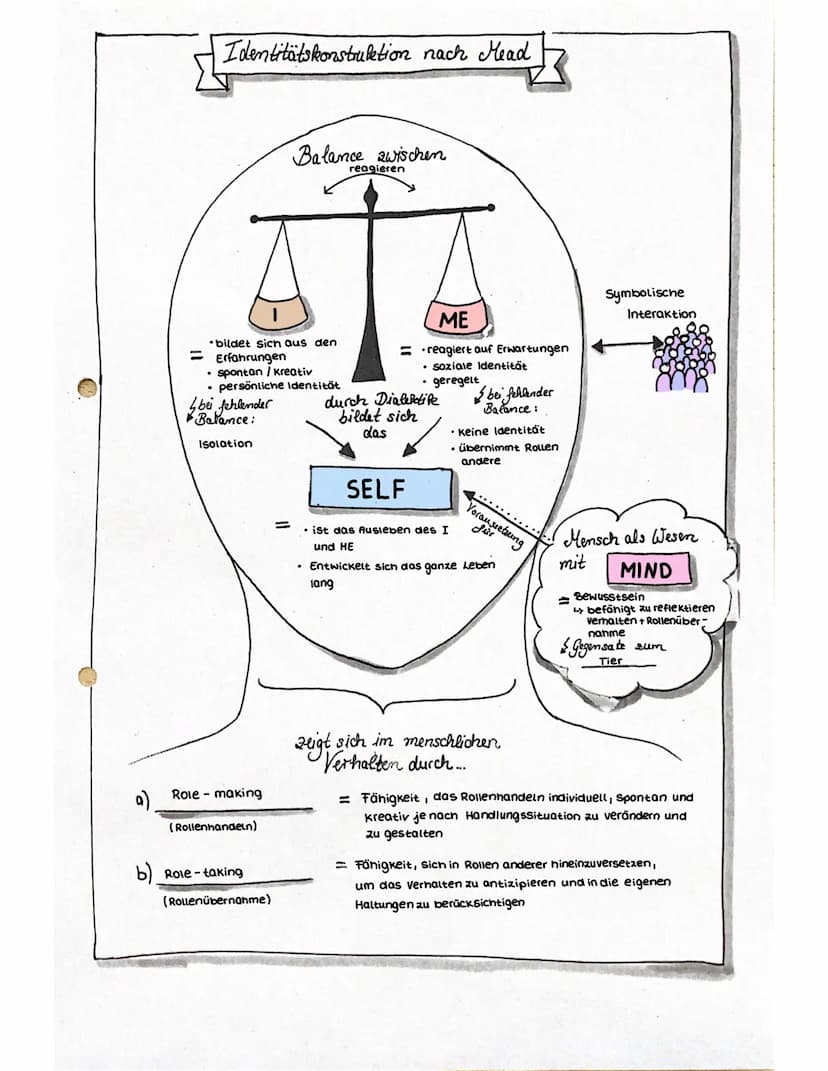 Identitätskonstruktion nach Mead
Balance zwischen
reagieren
I
ME
= • bildet sich aus den
Erfahrungen
• spontan / kreativ
• persönliche Identität
↯ bei fehlender
Balance:
Isolation
= • reagiert auf Erwartungen
• soziale Identität
• geregelt
↯ bei fehlender
Balance:
• Keine Identität
• übernimmt Rollen
andere
durch Dialektik
bildet sich
das
SELF
= • ist das Ausleben des I
und ME
• Entwickelt sich das ganze Leben
lang
Symbolische
Interaktion
Voraussetzung
für
Mensch als Wesen
mit MIND
= Bewusstsein
↳ befähigt zu reflektieren
Verhalten + Rollenüber-
nahme
↯ Gegensatz zum
Tier
zeigt sich im menschlichen
Verhalten durch...
a) Role - making
(Rollenhandeln)
= Fähigkeit, das Rollenhandeln individuell, spontan und
kreativ je nach Handlungssituation zu verändern und
zu gestalten
b) Role - taking
(Rollenübernahme)
= Fähigkeit, sich in Rollen anderer hineinzuversetzen,
um das Verhalten zu antizipieren und in die eigenen
Haltungen zu berücksichtigen